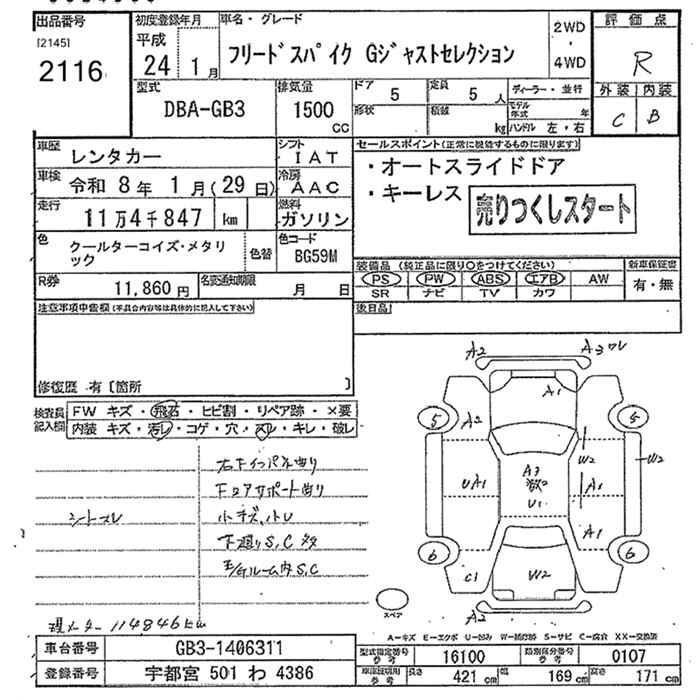 出品番号
[2145]
2116
初度登録年月
平成
24 1月
車名・グレード
フリードスパイク Gジャストセレクション
2WD
・
4WD
評価点
R
外装 内装
C B
型式
DBA-GB3
排気量
1500
CC
ドア
5
形状
定員
5人
積載
kg
ディーラー・並行
モデル年式 年
ハンドル 左・右
車歴
レンタカー
シフト
IAT
車検
令和 8年 1月(29日)
冷房
AAC
走行
11万4千847 km
燃料
ガソリン
色
クールターコイズ・メタリック
色替
色コード
BG59M
R券
11,860円
名変通知期限
月 日
セールスポイント(正常に機能するものに限ります)
・オートスライドドア
・キーレス
売りつくしスタート
装備品 (純正品に限り○をつけてください)
PS PW ABS エアB AW
SR ナビ TV カワ
新車保証書
有・無
後日品
注意事項申告欄(不具合内容等は具体的に記入して下さい)
修復歴 有〔箇所 〕
検査員記入欄
FW キズ・飛石・ヒビ割・リペア跡・×要
内装 キズ・汚レ・コゲ・穴・スレ・キレ・破レ
右下インパネ曲り
下コアサポート曲り
シートスレ
小キズ、小U
下廻りS,C
ルーム内S,C
現メーター114846km
A2
A3ワレ
A1
5
A2
5
W2
W2
UA1
A3
U1
A1
A1
6
6
C1
W2
A2
スペア
A-キズ E-エクボ U-凹み W-補修跡 S-サビ C-腐食 XX-交換済
車台番号
GB3-1406311
型式指定番号
参考
16100
類別区分番号
参考
0107
登録番号
宇都宮 501 わ 4386
参考
長さ
421 cm
幅
169 cm
高さ
171 cm